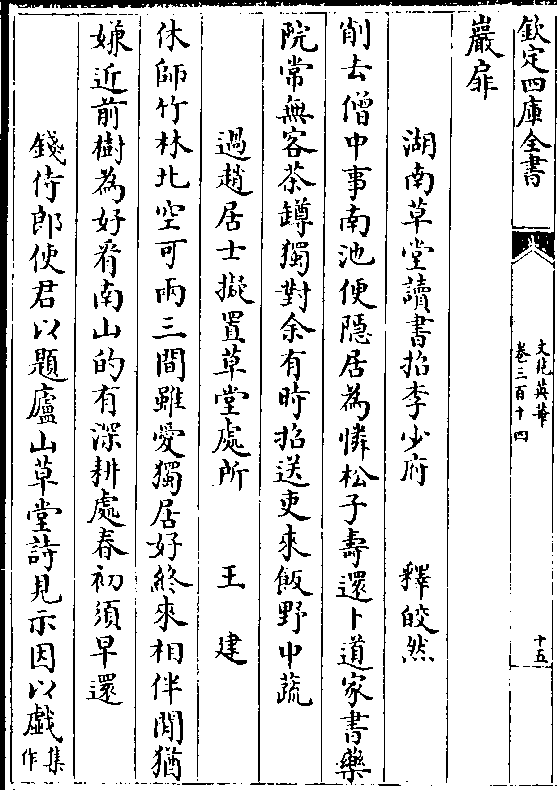 欽定四庫全書
文苑英華
卷三百十四
十五
巖扉
湖南草堂讀書招李少府 釋皎然
削去僧中事南池便隱居為憐松子壽還卜道家書藥
院常無客茶鐏獨對余有時招逸吏來飯野中蔬
過趙居士擬置草堂處所 王建
休師竹林北空可兩三間雖愛獨居好終來相伴閒猶
嫌近前樹為好看南山的有深耕處春初須早還
錢侍郎使君以題廬山草堂詩見示因以戲集作